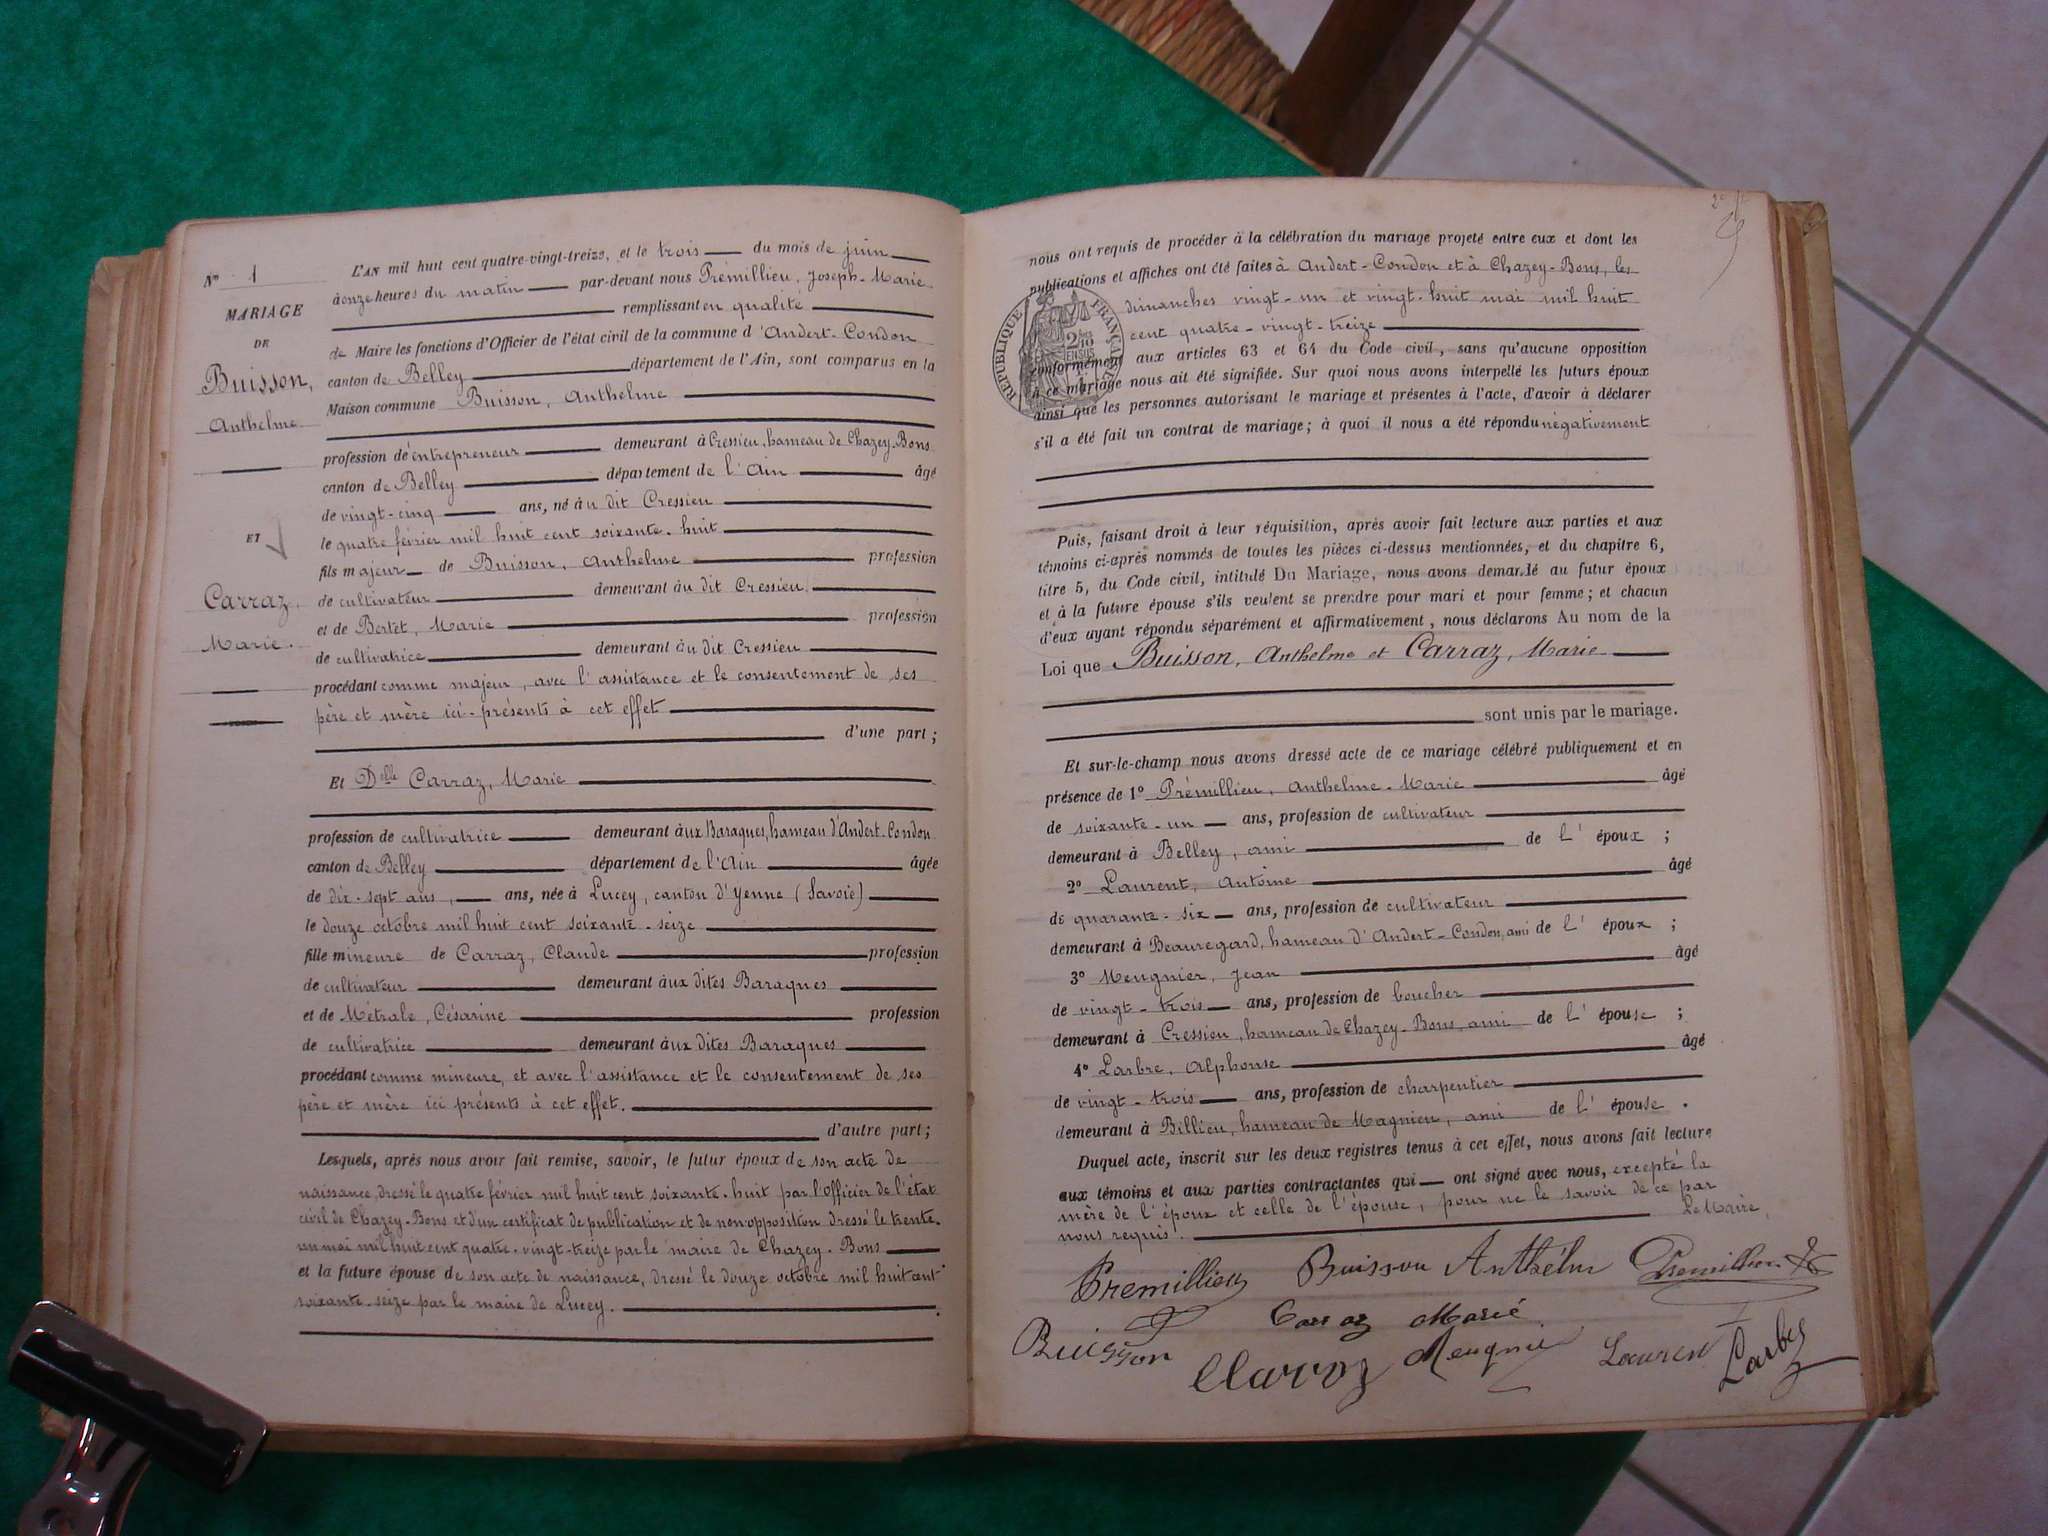 Nº 1
MARIAGE
DE
Buisson,
Anthelme
ET
Carraz,
Marie.
L'AN mil huit cent quatre-vingt-treize, et le trois du mois de juin
à onze heures du matin par-devant nous Prémillieu, Joseph-Marie
remplissant en qualité
de Maire les fonctions d'Officier de l'état civil de la commune d'Andert-Condon
canton de Belley département de l'Ain, sont comparus en la
Maison commune Buisson, Anthelme
profession de entrepreneur demeurant à Cressieu, hameau de Chazey-Bons
canton de Belley département de l'Ain âgé
de vingt-cinq ans, né àu dit Cressieu
le quatre février mil huit cent soixante-huit
fils majeur de Buisson, Anthelme profession
de cultivateur demeurant àu dit Cressieu
et de Bertet, Marie profession
de cultivatrice demeurant àu dit Cressieu
procédant comme majeur, avec l'assistance et le consentement de ses
père et mère ici-présents à cet effet
d'une part;
Et Delle Carraz, Marie
profession de cultivatrice demeurant àux Baraques, hameau d'Andert-Condon
canton de Belley département de l'Ain âgée
de dix-sept ans, ans, née à Lucey, canton d'Yenne (Savoie)
le douze octobre mil huit cent soixante-seize
fille mineure de Carraz, Claude profession
de cultivateur demeurant àux dites Baraques
et de Métrale, Césarine profession
de cultivatrice demeurant àux dites Baraques
procédant comme mineure, et avec l'assistance et le consentement de ses
père et mère ici présents à cet effet.
d'autre part;
Lesquels, après nous avoir fait remise, savoir, le futur époux de son acte de
naissance, dressé le quatre février mil huit cent soixante-huit par l'Officier de l'état
civil de Chazey-Bons et d'un certificat de publication et de non opposition dressé le trente-
un mai mil huit cent quatre-vingt-treize par le maire de Chazey-Bons
et la future épouse de son acte de naissance, dressé le douze octobre mil huit cent
soixante-seize par le maire de Lucey.
nous ont requis de procéder à la célébration du mariage projeté entre eux et dont les
publications et affiches ont été faites à Andert-Condon et à Chazey-Bons, les
dimanches vingt-un et vingt-huit mai mil huit
cent quatre-vingt-treize
RÉPUBLIQUE FRANÇAISE
conformément aux articles 63 et 64 du Code civil, sans qu'aucune opposition
à ce mariage nous ait été signifiée. Sur quoi nous avons interpellé les futurs époux
ainsi que les personnes autorisant le mariage et présentes à l'acte, d'avoir à déclarer
s'il a été fait un contrat de mariage; à quoi il nous a été répondu négativement
Puis, faisant droit à leur réquisition, après avoir fait lecture aux parties et aux
témoins ci-après nommés de toutes les pièces ci-dessus mentionnées, et du chapitre 6,
titre 5, du Code civil, intitulé Du Mariage, nous avons demandé au futur époux
et à la future épouse s'ils veulent se prendre pour mari et pour femme; et chacun
d'eux ayant répondu séparément et affirmativement, nous déclarons Au nom de la
Loi que Buisson, Anthelme et Carraz, Marie
sont unis par le mariage.
Et sur-le-champ nous avons dressé acte de ce mariage célébré publiquement et en
présence de 1º Prémillieu, Anthelme-Marie âgé
de soixante-un ans, profession de cultivateur
demeurant à Belley, ami de l'époux;
2º Laurent, Antoine âgé
de quarante-six ans, profession de cultivateur
demeurant à Beauregard, hameau d'Andert-Condon, ami de l'époux;
3º Meugnier, Jean âgé
de vingt-trois ans, profession de boucher
demeurant à Cressieu, hameau de Chazey-Bons, ami de l'épouse;
4º Larbre, Alphonse âgé
de vingt-trois ans, profession de charpentier
demeurant à Billieu, hameau de Magnieu, ami de l'épouse.
Duquel acte, inscrit sur les deux registres tenus à cet effet, nous avons fait lecture
aux témoins et aux parties contractantes qui ont signé avec nous, excepté la
mère de l'époux et celle de l'épouse, pour ne le savoir de ce par
nous requis. Le Maire,
Premillieu Buisson Anthelm Premillieu
Carraz Marie
Buisson Carraz Meugnié Lauren Larbre